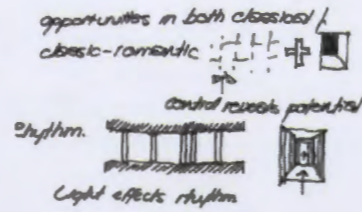 opportunities in both classical/
classic-romantic
control reveals potential
rhythm.
Light effects rhythm